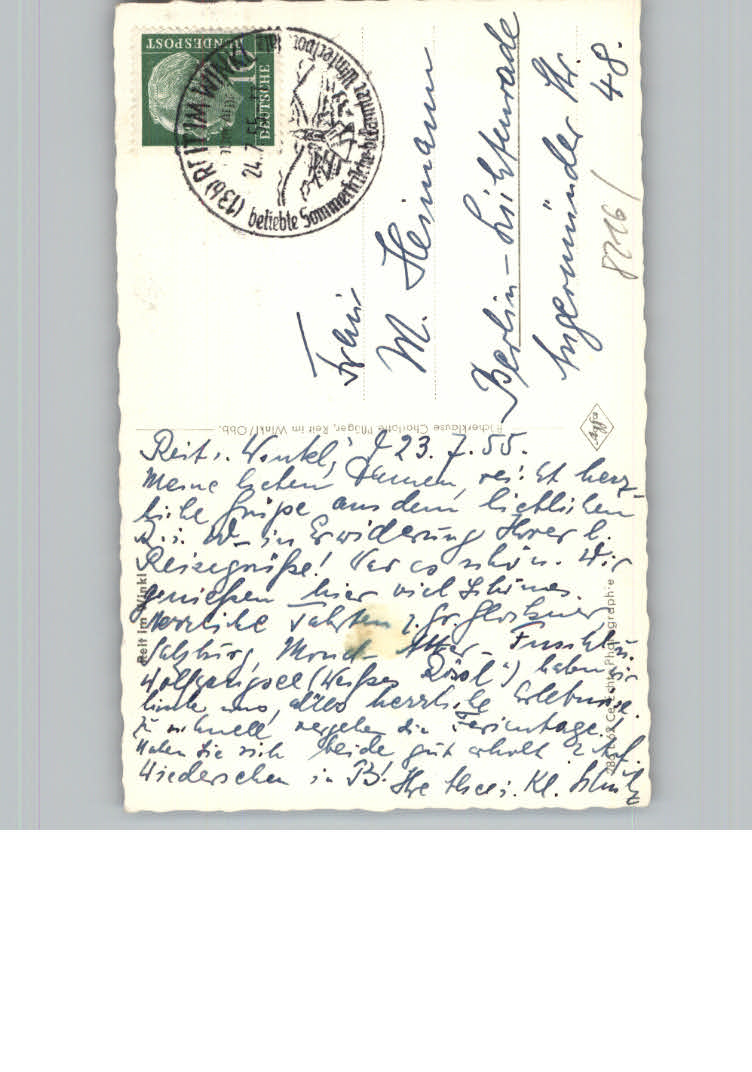 DEUTSCHE
BUNDESPOST
10
(13b) REIT IM WINKL
24.7.55
beliebte Sommerfrische bekannter Wintersportplatz
Frau
M. Heimann
Berlin-Lichtenrade
Angermünder Str.
48.
8216/
Agfa
Bücherklause Charlotte Pflüger, Reit im Winkl/Obb.
Reit im Winkl
Echte Photographie
Reit i. Winkl, 23.7.55.
Meine lieben Damen, recht herz-
liche Grüße aus dem lieblichen
R. i. W. in Erwiderung Ihrer l.
Reisegrüße! War es schön. Wir
genießen hier viel Schönes.
Herrliche Fahrten z. Gr. Glockner,
Salzburg, Mond- Atter- Fuschl u.
Wolfgangsee (Weißes Rössl) haben wir
hinter uns, alles herrliche Erlebnisse.
Zu schnell vergehen die Ferientage!
Haben Sie sich beide gut erholt? Auf
Wiedersehen in B! Ihre Kl. Schulz